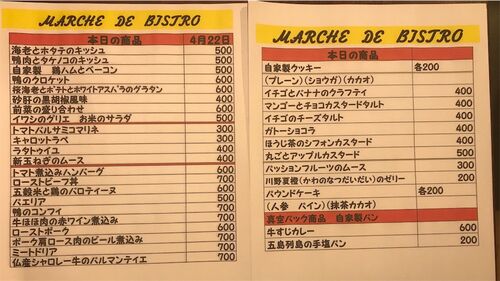 MARCHE DE BISTRO
本日の商品 4月22日
海老とホタテのキッシュ 500
鴨肉とタケノコのキッシュ 500
自家製 鶏ハムとベーコン 500
鴨のクロケット 600
桜海老とポテトとホワイトアスパラのグラタン 600
砂肝の黒胡椒風味 400
前菜の盛り合わせ 600
イワシのグリエ お米のサラダ 500
トマトバルサミコマリネ 300
キャロットラペ 300
ラタトゥイユ 400
新玉ねぎのムース 400
トマト煮込みハンバーグ 600
ローストビーフ丼 700
五穀米と鶏のバロティーヌ 600
パエリア 500
鴨のコンフィ 700
牛ほほ肉の赤ワイン煮込み 700
ローストポーク 600
ポーク肩ロース肉のビール煮込み 700
ミートドリア 700
仏産シャロレー牛のパルマンティエ 700
MARCHE DE BISTRO
本日の商品
自家製ウッキー 各200
(プレーン)(ショウガ)(カカオ)
イチゴとバナナのクラフティ 400
マンゴーとチョコカスタードタルト 400
イチゴのチーズタルト 400
ガトーショコラ 400
ほうじ茶のシフォンカスタード 400
丸ごとアップルカスタード 500
パッションフルーツのムース 300
川野夏橙(かわのなつだいだい)のゼリー 200
パウンドケーキ 各200
(人参 パイン)(抹茶カカオ)
真空パック商品 自家製パン
牛すじカレー 600
五島列島の手塩パン 200